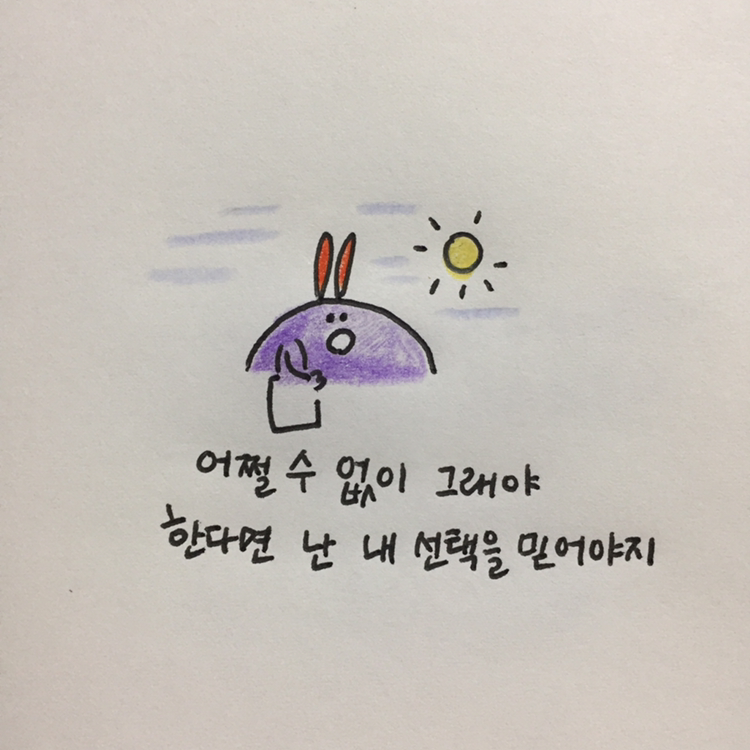 어쩔 수 없이 그래야
한다면 난 내 선택을 믿어야지